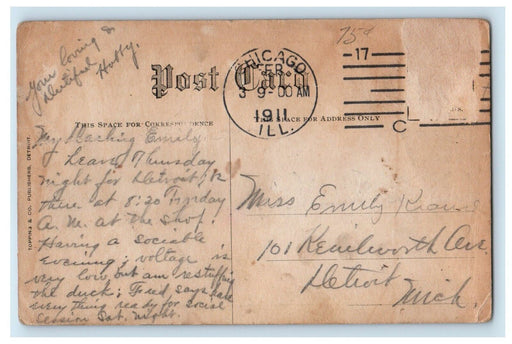 Your loving &
Hubby.
75¢
Post Card
CHICAGO,
FEB
3 9-00 AM
1911
ILL.
17
C
THIS SPACE FOR CORRESPONDENCE
THIS SPACE FOR ADDRESS ONLY
TOPPING & CO. PUBLISHERS, DETROIT.
My Darling Emily
Leave Thursday
night for Detroit, be
there at 8:30 Friday
A.M. at the Shop.
Having a sociable
Evening; voltage is
very low but am restuffing
the duck; Fred says have
everything ready for social
session Sat. night.
Miss Emily
101 Kenilworth Ave.
Detroit
Mich.